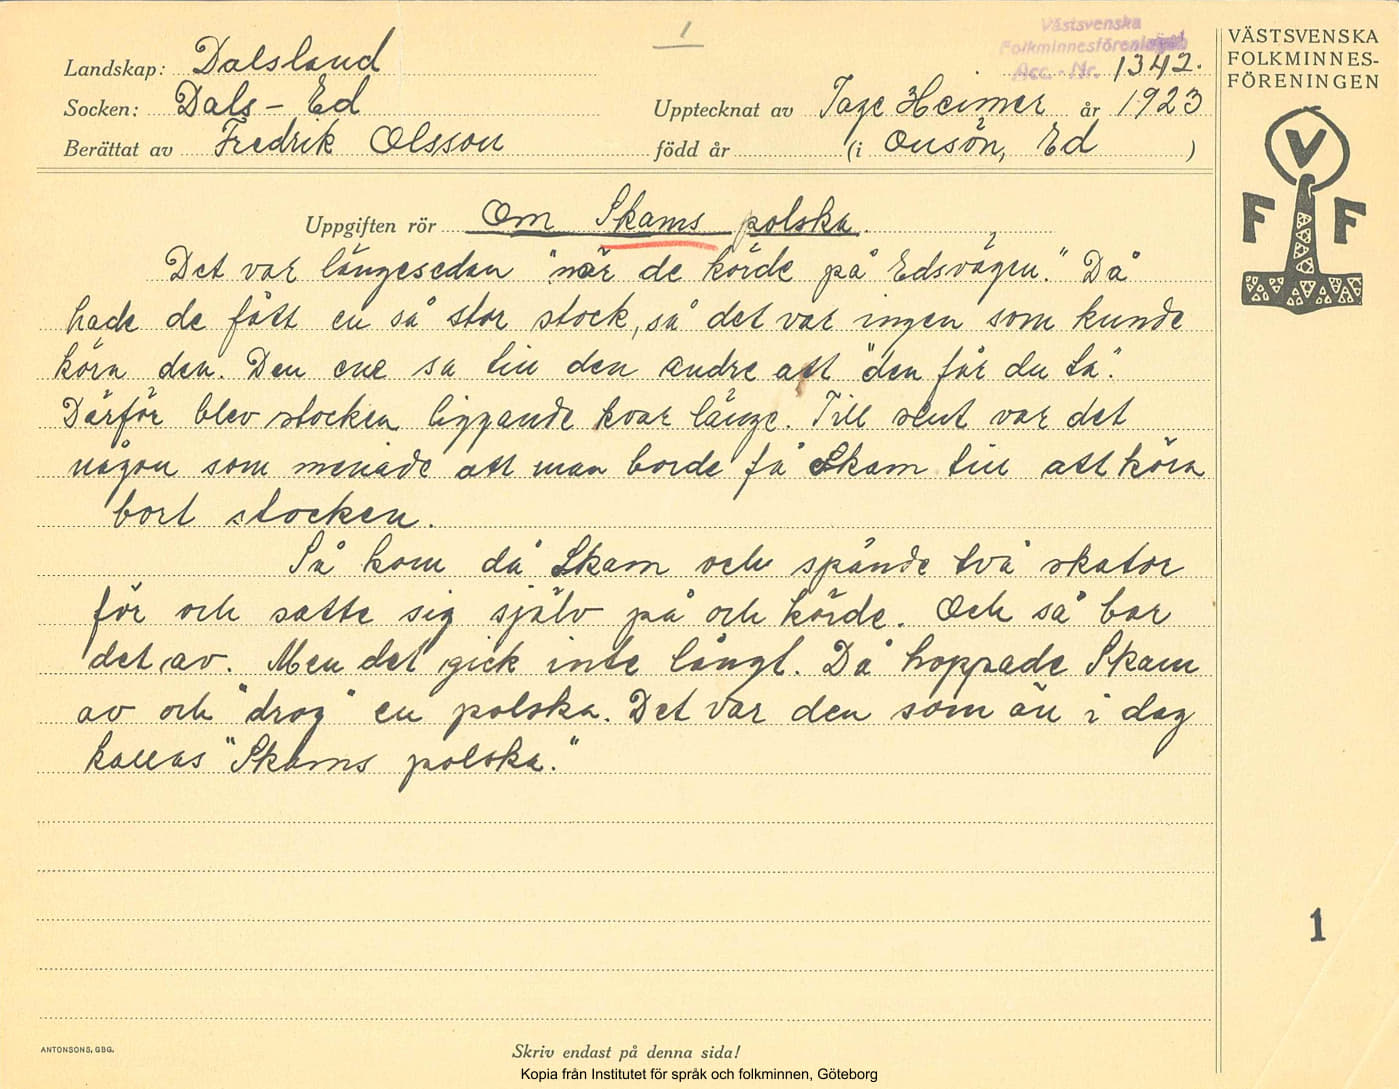 1
Västsvenska
Folkminnesföreningen
Acc. - Nr. 1342.
Landskap: Dalsland
Socken: Dals-Ed
Upptecknat av Tage Heimer år 1923
Berättat av Fredrik Olsson
född år (i Onsön, Ed )
VÄSTSVENSKA
FOLKMINNES-
FÖRENINGEN
V
F F
Uppgiften rör Om Skams polska.
Det var längesedan "när de körde på Edsvägen." Då
hade de fått en så stor stock, så det var ingen som kunde
köra den. Den ene sa till den andre att "den får du ta".
Därför blev stocken liggande kvar länge. Till slut var det
någon som menade att man borde få Skam till att köra
bort stocken.
Så kom då Skam och spände två skator
för och satte sig själv på och körde. Och så bar
det av. Men det gick inte långt. Då hoppade Skam
av och "drog" en polska. Det var den som än i dag
kallas "Skams polska."
1
ANTONSONS, GBG.
Skriv endast på denna sida!
Kopia från Institutet för språk och folkminnen, Göteborg